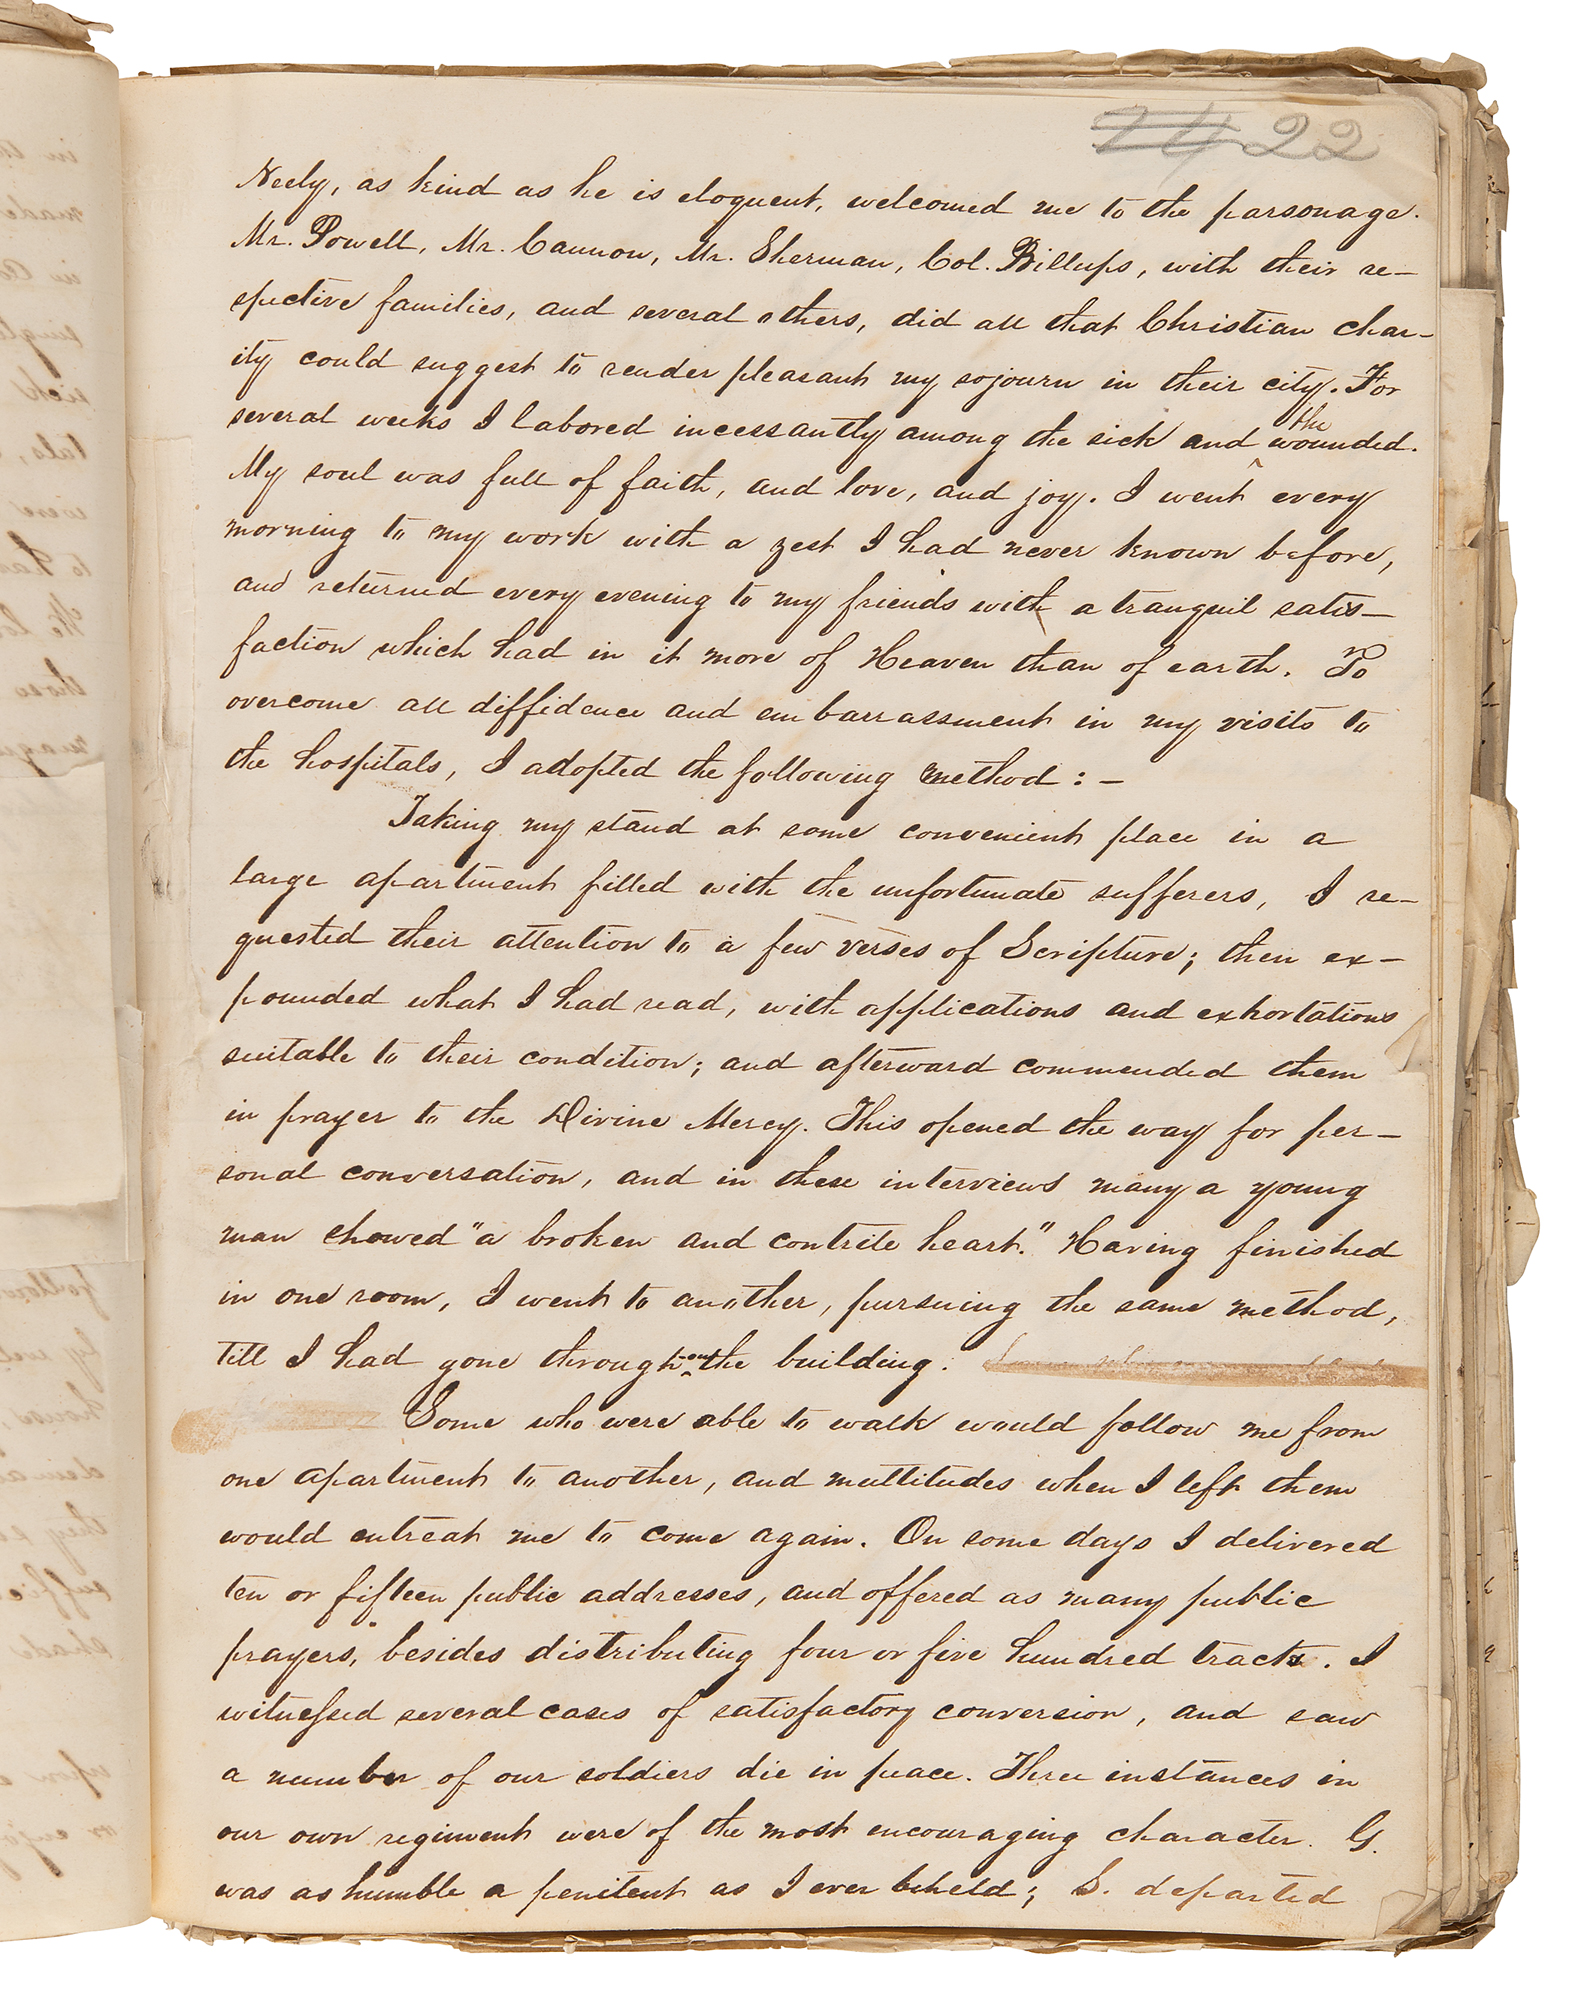 24 22
Neely, as kind as he is eloquent, welcomed me to the parsonage.
Mr. Powell, Mr. Cannon, Mr. Sherman, Col. Billups, with their re-
spective families, and several others, did all that Christian char-
ity could suggest to render pleasant my sojourn in their city. For
the
several weeks I labored incessantly among the sick and ^ wounded.
My soul was full of faith, and love, and joy. I went every
morning to my work with a zest I had never known before,
and returned every evening to my friends with a tranquil satis-
faction which had in it more of Heaven than of earth. To
overcome all diffidence and embarrassment in my visits to
the hospitals, I adopted the following method:-
Taking my stand at some convenient place in a
large apartment filled with the unfortunate sufferers, I re-
quested their attention to a few verses of Scripture; then ex-
pounded what I had read, with applications and exhortations
suitable to their condition; and afterward commended them
in prayer to the Divine Mercy. This opened the way for per-
sonal conversation, and in these interviews many a young
man showed "a broken and contrite heart." Having finished
in one room, I went to another, pursuing the same method,
till I had gone throughout the building.
Some who were able to walk would follow me from
one apartment to another, and multitudes when I left them
would entreat me to come again. On some days I delivered
ten or fifteen public addresses, and offered as many public
prayers, besides distributing four or five hundred tracts. I
witnessed several cases of satisfactory conversion, and saw
a number of our soldiers die in peace. Three instances in
our own regiment were of the most encouraging character. G.
was as humble a penitent as I ever beheld; S. departed